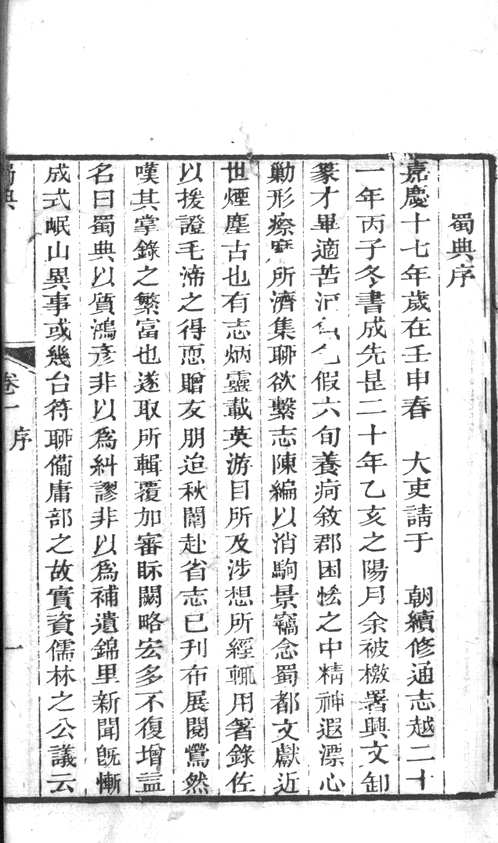 蜀典序
嘉慶十七年歲在壬申春 大吏請于 朝續修通志越二十
一年丙子冬書成先是二十年乙亥之陽月余被檄署興文卸
篆才畢適苦河魚乞假六旬養疴敘郡困惙之中精神遐漂心
勦形瘵靡所濟集聊欲繫志陳編以消駒景竊念蜀都文獻近
世煙塵古也有志炳靈載英游目所及涉想所經輒用箸錄佐
以援證毛渧之得恧贈友朋迨秋闈赴省志已刊布展閱驚然
嘆其掌錄之繁富也遂取所輯覆加審眎闕略宏多不復增益
名曰蜀典以質鴻彥非以為糾謬非以為補遺錦里新聞旣慚
成式岷山異事或幾台符聊備庸部之故實資儒林之公議云
蜀典
卷一 序
一